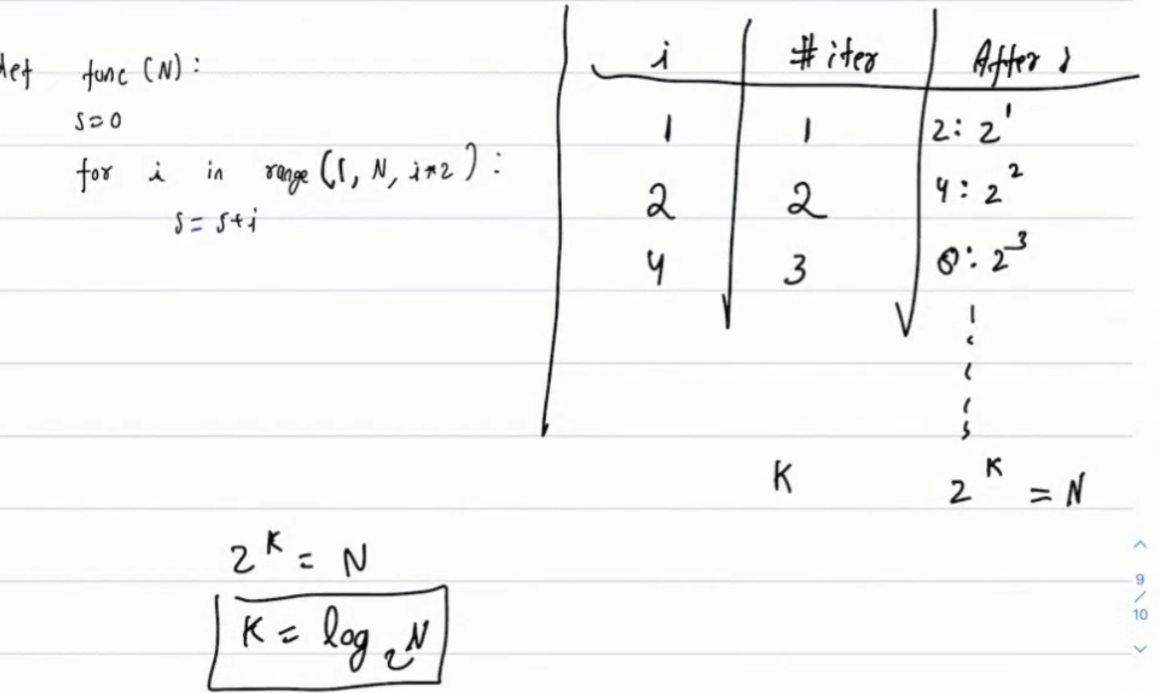 def func (N):
s=0
for i in range (1, N, i*2):
s= s+i
i # iter After
1 1 2: 2^1
2 2 4: 2^2
4 3 8: 2^3
K 2^K = N
2^K = N
K = log_2 N
9
/
10